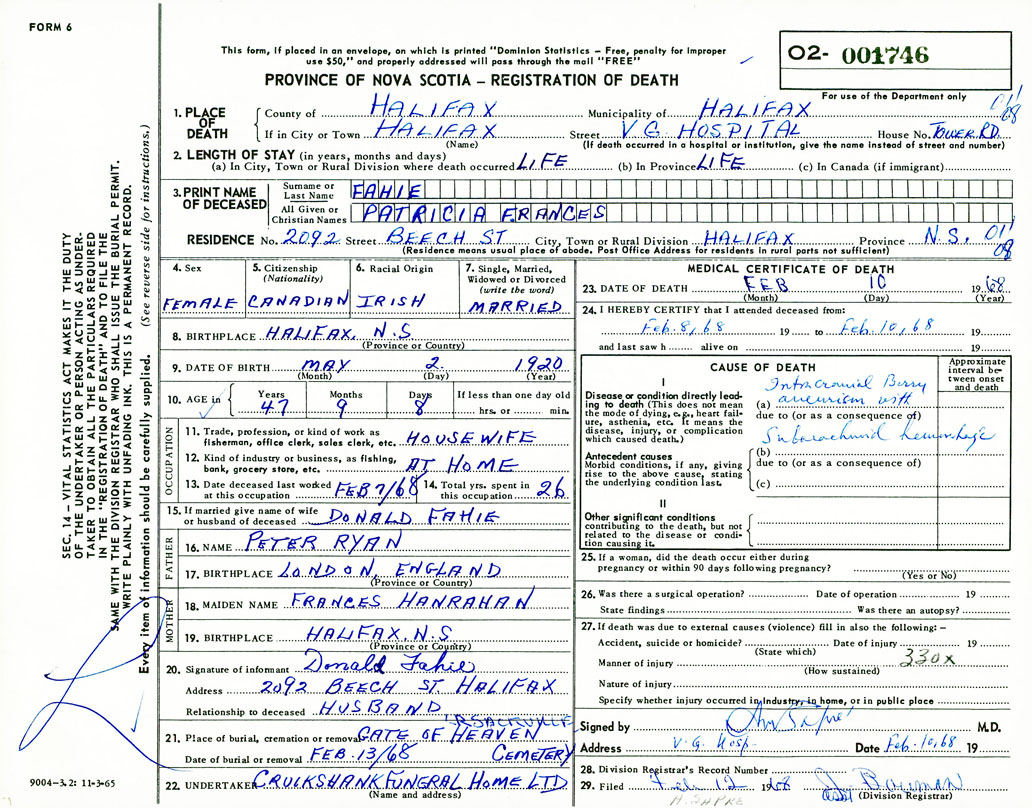 FORM 6
This form, if placed in an envelope, on which is printed "Dominion Statistics – Free, penalty for improper
use $50," and properly addressed will pass through the mail "FREE"
O2- 001746
PROVINCE OF NOVA SCOTIA – REGISTRATION OF DEATH
For use of the Department only
1. PLACE OF DEATH
County of HALIFAX Municipality of HALIFAX
If in City or Town HALIFAX Street V G. HOSPITAL House No. TOWER RD.
(Name) (If death occurred in a hospital or institution, give the name instead of street and number)
2. LENGTH OF STAY (in years, months and days)
(a) In City, Town or Rural Division where death occurred LIFE (b) In Province LIFE (c) In Canada (if immigrant)
3. PRINT NAME OF DECEASED
Surname or Last Name FAHIE
All Given or Christian Names PATRICIA FRANCES
RESIDENCE No. 2092 Street BEECH ST City, Town or Rural Division HALIFAX Province N.S.
(Residence means usual place of abode. Post Office Address for residents in rural parts not sufficient)
4. Sex
FEMALE
5. Citizenship
(Nationality)
CANADIAN
6. Racial Origin
IRISH
7. Single, Married,
Widowed or Divorced
(write the word)
MARRIED
8. BIRTHPLACE HALIFAX, N.S
(Province or Country)
9. DATE OF BIRTH MAY 2. 1920
(Month) (Day) (Year)
10. AGE in
Years Months Days If less than one day old
47 9 8 hrs. or min.
OCCUPATION
11. Trade, profession, or kind of work as
fisherman, office clerk, sales clerk, etc. HOUSEWIFE
12. Kind of industry or business, as fishing,
bank, grocery store, etc. AT HOME
13. Date deceased last worked
at this occupation FEB 7/68
14. Total yrs. spent in
this occupation 26
15. If married give name of wife
or husband of deceased DONALD FAHIE
FATHER
16. NAME PETER RYAN
17. BIRTHPLACE LONDON, ENGLAND
(Province or Country)
MOTHER
18. MAIDEN NAME FRANCES HANRAHAN
19. BIRTHPLACE HALIFAX, N.S
(Province or Country)
20. Signature of informant Donald Fahie
Address 2092 BEECH ST. HALIFAX
Relationship to deceased HUSBAND
SACKVILLE
21. Place of burial, cremation or removal GATE OF HEAVEN
CEMETERY
Date of burial or removal FEB. 13/68
22. UNDERTAKER CRUIKSHANK FUNERAL HOME LTD
(Name and address)
MEDICAL CERTIFICATE OF DEATH
23. DATE OF DEATH FEB 10 1968
(Month) (Day) (Year)
24. I HEREBY CERTIFY that I attended deceased from:
Feb. 8, 68 19 to Feb. 10, 68 19
and last saw h alive on 19
CAUSE OF DEATH
Approximate
interval be-
tween onset
and death
I
Disease or condition directly lead-
ing to death (This does not mean
the mode of dying, e.g., heart fail-
ure, asthenia, etc. It means the
disease, injury, or complication
which caused death.)
Intracranial Berry
(a) aneurism with
due to (or as a consequence of)
Subarachnoid hemorrhage
Antecedent causes
Morbid conditions, if any, giving
rise to the above cause, stating
the underlying condition last.
(b)
due to (or as a consequence of)
(c)
II
Other significant conditions
contributing to the death, but not
related to the disease or condi-
tion causing it.
25. If a woman, did the death occur either during
pregnancy or within 90 days following pregnancy?
(Yes or No)
26. Was there a surgical operation? Date of operation 19
State findings Was there an autopsy?
27. If death was due to external causes (violence) fill in also the following: –
Accident, suicide or homicide? Date of injury 19
(State which)
330x
Manner of injury
(How sustained)
Nature of injury
Specify whether injury occurred in industry, in home, or in public place
Signed by M.D.
Address V. G. Hosp. Date Feb. 10, 68 19
28. Division Registrar's Record Number
29. Filed Feb 12 1968 Bowman
(Division Registrar)
H. SAPRE
SEC. 14 – VITAL STATISTICS ACT MAKES IT THE DUTY
OF THE UNDERTAKER OR PERSON ACTING AS UNDER-
TAKER TO OBTAIN ALL THE PARTICULARS REQUIRED
IN THE "REGISTRATION OF DEATH" AND TO FILE THE
SAME WITH THE DIVISION REGISTRAR WHO SHALL ISSUE THE BURIAL PERMIT.
WRITE PLAINLY WITH UNFADING INK. THIS IS A PERMANENT RECORD.
Every item of information should be carefully supplied. (See reverse side for instructions.)
9004-3.2: 11-3-65